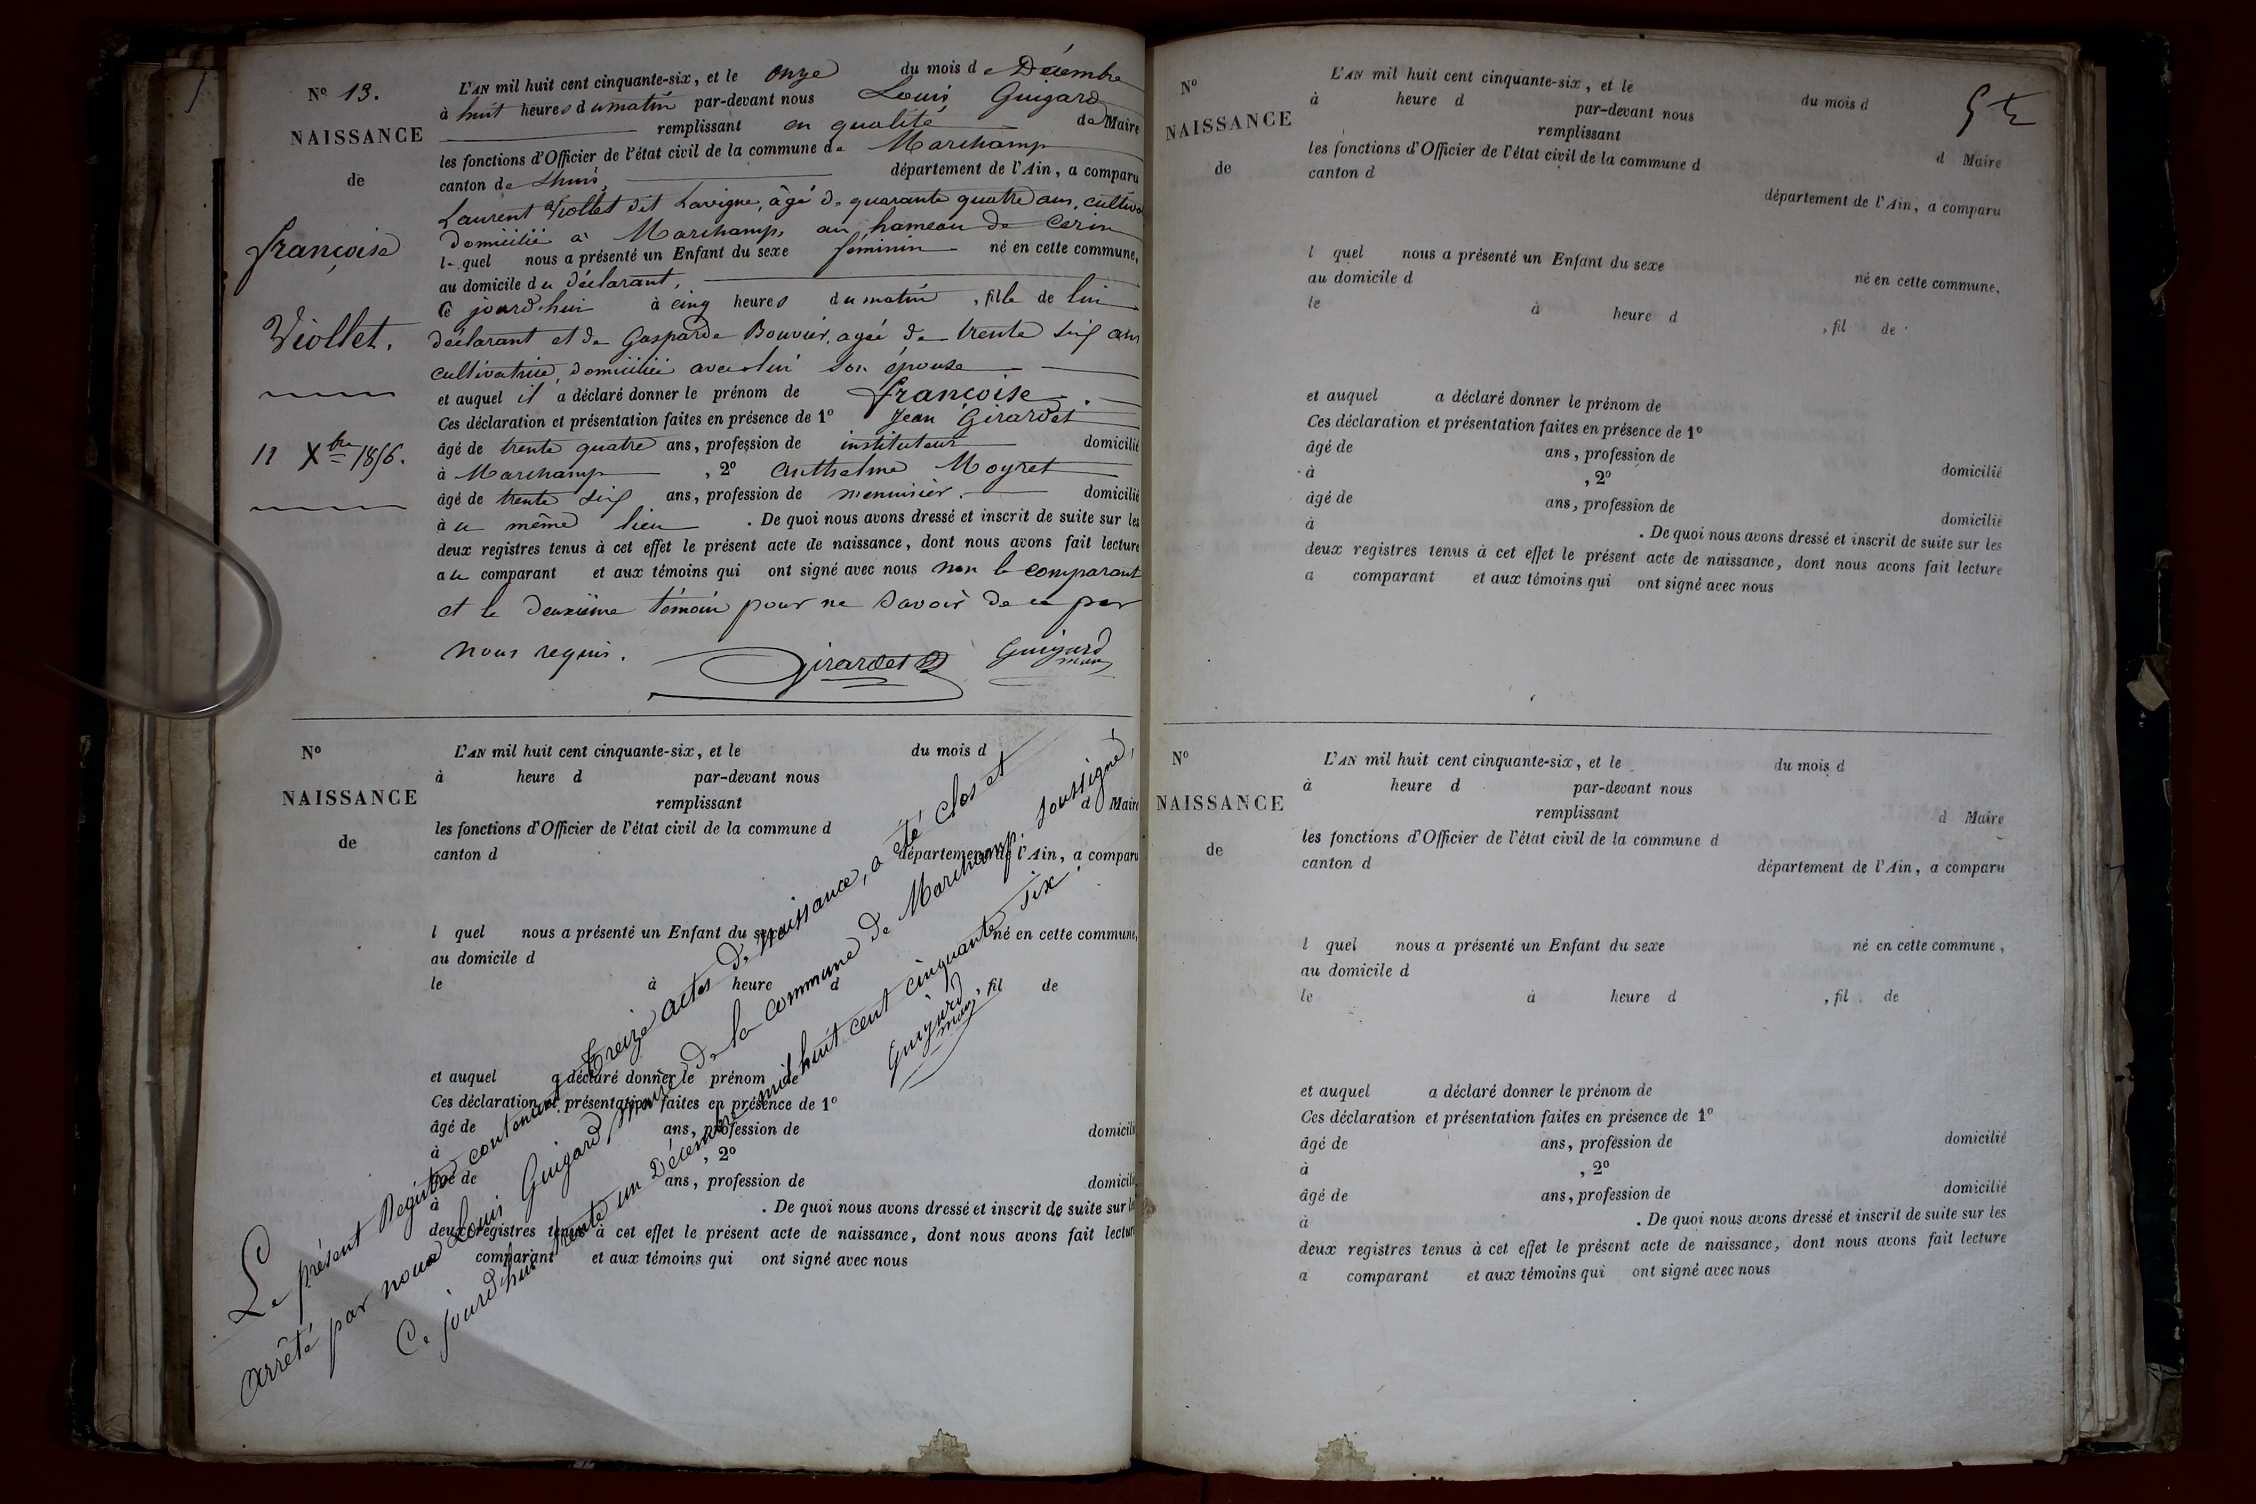 N° 13.
NAISSANCE
de
françoise
Viollet.
11 Xbre 1856.
L'AN mil huit cent cinquante-six, et le onze du mois de Décembre
à huit heures du matin par-devant nous Louis Guigard
remplissant en qualité de Maire
les fonctions d'Officier de l'état civil de la commune de Marchamp
canton de Lhuis, département de l'Ain, a comparu
Laurent Viollet dit Lavigne, âgé de quarante quatre ans, cultiva
domicilié à Marchamp, au hameau de Cerin
lequel nous a présenté un Enfant du sexe féminin né en cette commune,
au domicile du déclarant,
ce jourd'hui à cinq heures du matin, fille de lui
déclarant et de Gasparde Bouvier, agée de trente six ans
cultivatrice, domiciliée avec lui son épouse
et auquel il a déclaré donner le prénom de françoise.
Ces déclaration et présentation faites en présence de 1° Jean Girardet
âgé de trente quatre ans, profession de instituteur domicilié
à Marchamp, 2° Anthelme Moyret
âgé de trente six ans, profession de menuisier. domicilié
à ce même lieu. De quoi nous avons dressé et inscrit de suite sur les
deux registres tenus à cet effet le présent acte de naissance, dont nous avons fait lecture
au comparant et aux témoins qui ont signé avec nous non le comparant
et le deuxième témoin pour ne savoir de ce par
nous requis.
Girardet Guigard
maire
N°
NAISSANCE
de
L'AN mil huit cent cinquante-six, et le du mois d
à heure d par-devant nous
remplissant d Maire
les fonctions d'Officier de l'état civil de la commune d
canton d département de l'Ain, a comparu
l quel nous a présenté un Enfant du sexe né en cette commune,
au domicile d
le à heure d , fil de
et auquel a déclaré donner le prénom de
Ces déclaration et présentation faites en présence de 1°
âgé de ans, profession de domicilié
à , 2°
âgé de ans, profession de domicilié
à . De quoi nous avons dressé et inscrit de suite sur les
deux registres tenus à cet effet le présent acte de naissance, dont nous avons fait lecture
comparant et aux témoins qui ont signé avec nous
Le présent Registre contenant treize actes de naissance, a été clos et
arrêté par nous Louis Guigard, Maire de la commune de Marchamp, soussigné,
Ce jourd'hui trente un Décembre mil huit cent cinquante six.
Guigard
maire
N°
NAISSANCE
de
L'AN mil huit cent cinquante-six, et le du mois d
à heure d par-devant nous
remplissant d Maire
les fonctions d'Officier de l'état civil de la commune d
canton d département de l'Ain, a comparu
l quel nous a présenté un Enfant du sexe né en cette commune,
au domicile d
le à heure d , fil de
et auquel a déclaré donner le prénom de
Ces déclaration et présentation faites en présence de 1°
âgé de ans, profession de domicilié
à , 2°
âgé de ans, profession de domicilié
à . De quoi nous avons dressé et inscrit de suite sur les
deux registres tenus à cet effet le présent acte de naissance, dont nous avons fait lecture
a comparant et aux témoins qui ont signé avec nous
N°
NAISSANCE
de
L'AN mil huit cent cinquante-six, et le du mois d
à heure d par-devant nous
remplissant d Maire
les fonctions d'Officier de l'état civil de la commune d
canton d département de l'Ain, a comparu
l quel nous a présenté un Enfant du sexe né en cette commune,
au domicile d
le à heure d , fil de
et auquel a déclaré donner le prénom de
Ces déclaration et présentation faites en présence de 1°
âgé de ans, profession de domicilié
à , 2°
âgé de ans, profession de domicilié
à . De quoi nous avons dressé et inscrit de suite sur les
deux registres tenus à cet effet le présent acte de naissance, dont nous avons fait lecture
a comparant et aux témoins qui ont signé avec nous